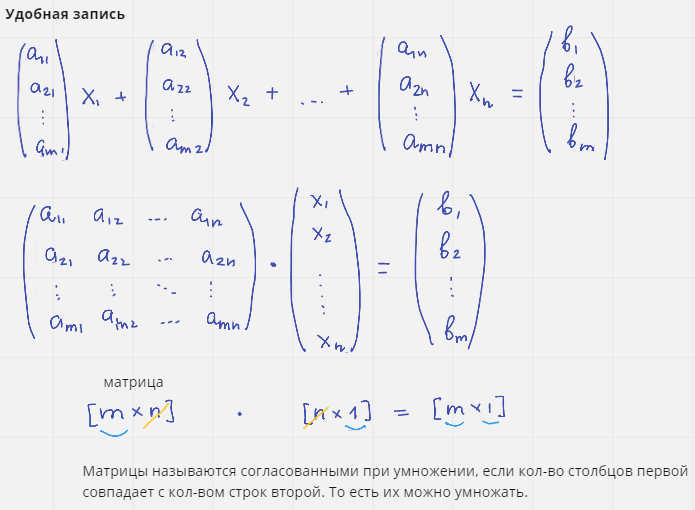 Удобная запись
(a₁₁ a₂₁ ⋮ aₘ₁) x₁ + (a₁₂ a₂₂ ⋮ aₘ₂) x₂ + ... + (a₁ₙ a₂ₙ ⋮ aₘₙ) xₙ = (b₁ b₂ ⋮ bₘ)
(a₁₁ a₁₂ ... a₁ₙ
a₂₁ a₂₂ ... a₂ₙ
⋮ ⋮ ⋱ ⋮
aₘ₁ aₘ₂ ... aₘₙ) · (x₁ x₂ ⋮ xₙ) = (b₁ b₂ ⋮ bₘ)
матрица
[m × n] · [n × 1] = [m × 1]
Матрицы называются согласованными при умножении, если кол-во столбцов первой
совпадает с кол-вом строк второй. То есть их можно умножать.